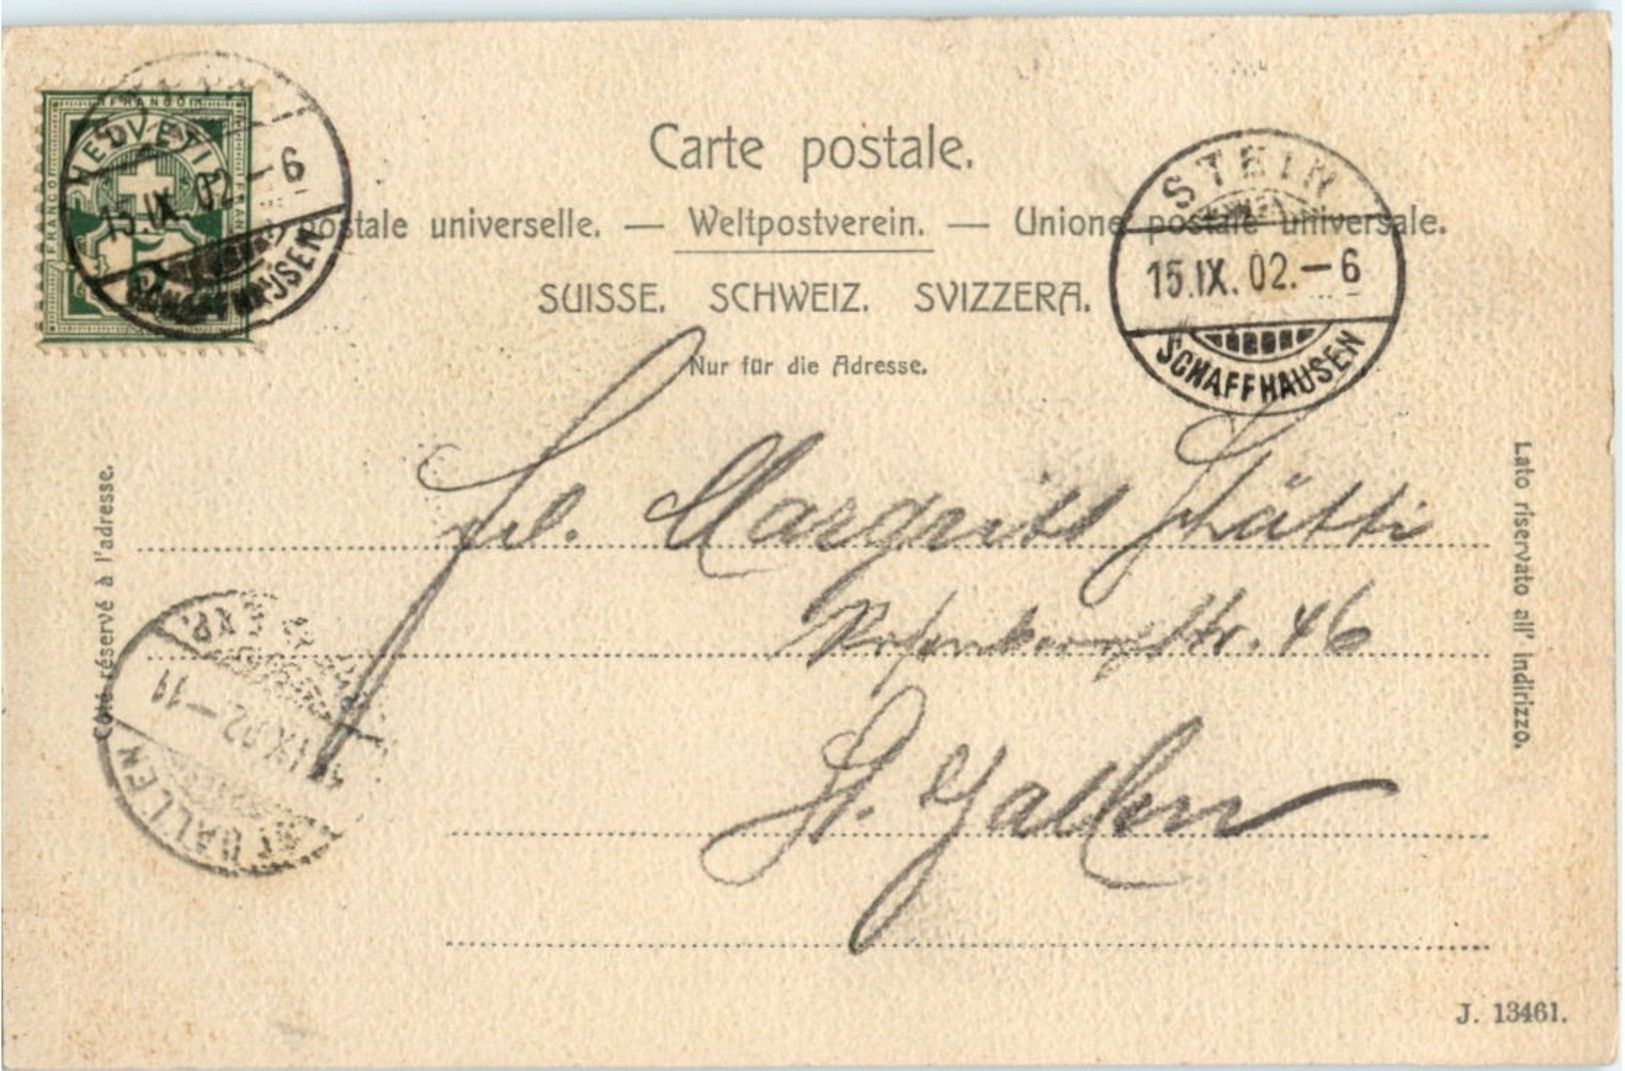 FRANCO
HELVETIA
FRANCO
FRANCO
15.IX.02.–6
SCHAFFHAUSEN
Carte postale.
postale universelle. — Weltpostverein. — Unione postale universale.
SUISSE. SCHWEIZ. SVIZZERA.
Nur für die Adresse.
STEIN
15.IX.02.–6
SCHAFFHAUSEN
Côté réservé à l'adresse.
Lato riservato all' indirizzo.
Frl. Margritt Stätti
Rosenbergstr. 46
St. Gallen
IX.02–11
GALLEN
J. 13461.